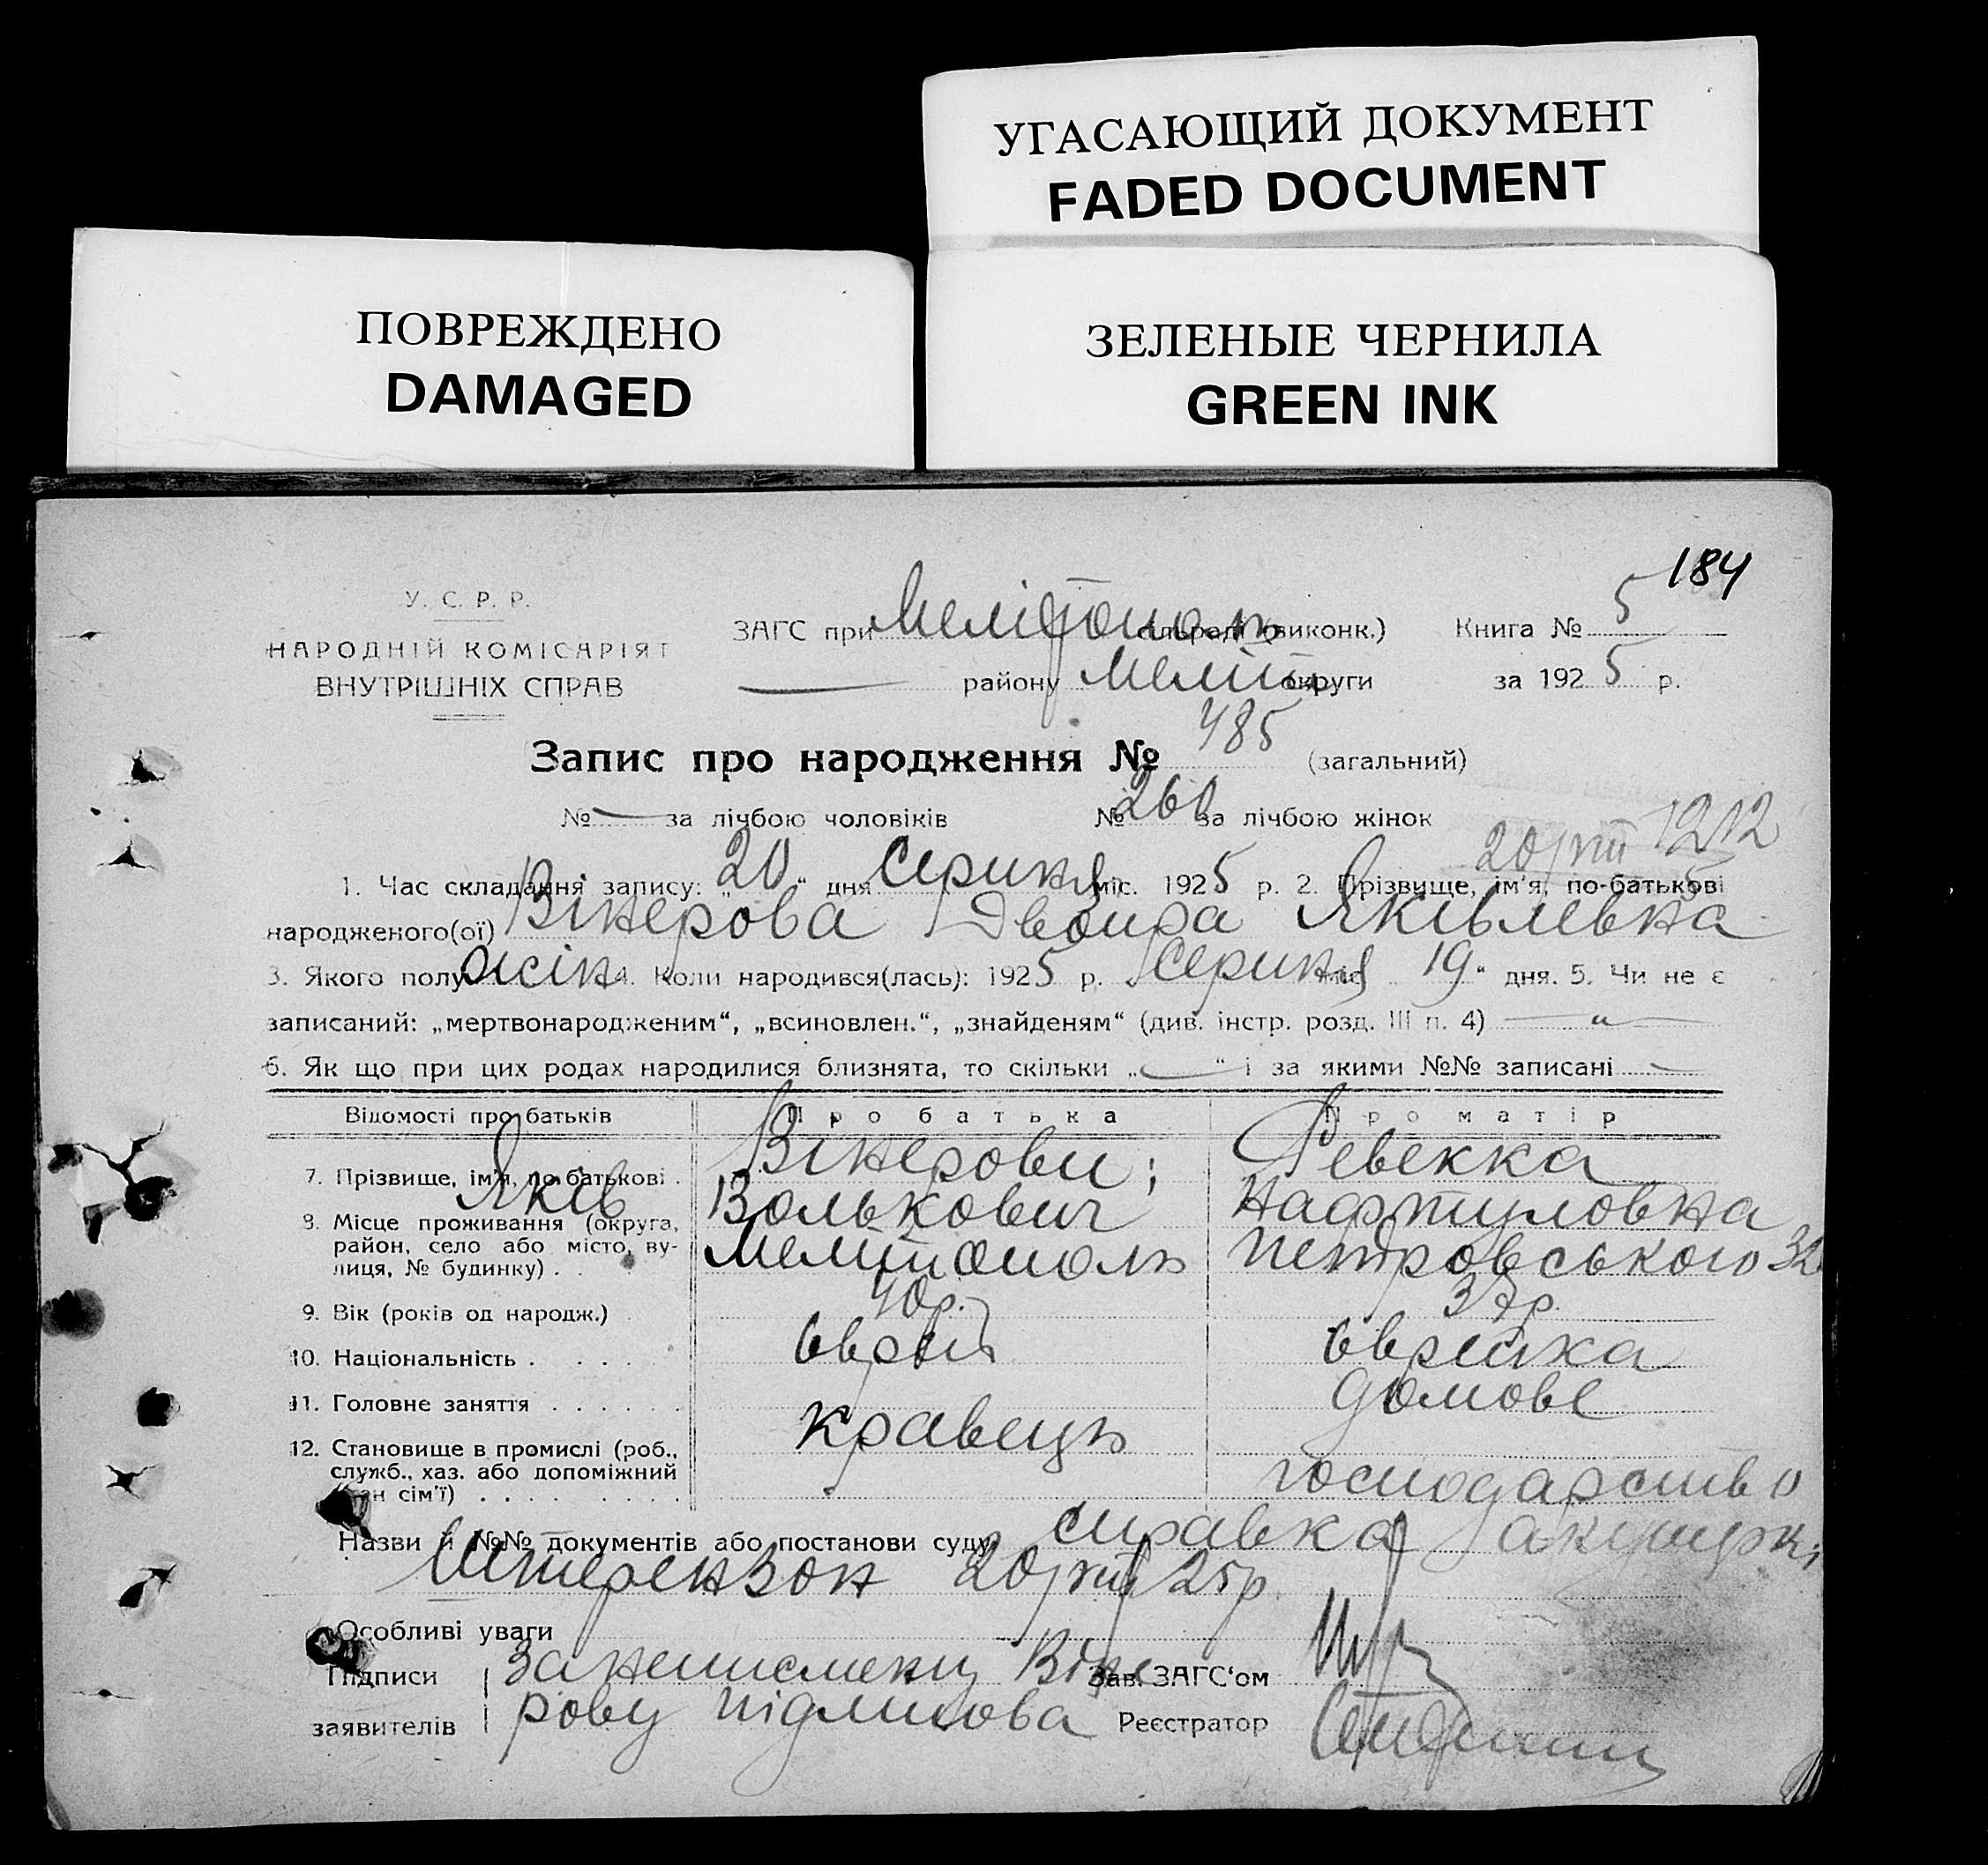 УГАСАЮЩИЙ ДОКУМЕНТ
FADED DOCUMENT
ПОВРЕЖДЕНО
DAMAGED
ЗЕЛЕНЫЕ ЧЕРНИЛА
GREEN INK
184
У. С. Р. Р.
НАРОДНІЙ КОМІСАРІЯТ
ВНУТРІШНІХ СПРАВ
ЗАГС при Мелітополь сільраді (виконк.) Книга № 5
— району Меліт округи за 1925 р.
Запис про народження № 485 (загальний)
№ — за лічбою чоловіків № 260 за лічбою жінок
20/VIII 5 1212
1. Час складання запису: „20“ дня Серпня міс. 1925 р. 2. Прізвище, ім'я, по-батькові
народженого(ої) Вінерова Двойра Яківлевна
3. Якого полу жін 4. Коли народився(лась): 1925 р. Серпня міс 19“ дня. 5. Чи не є
записаний: „мертвонародженим“, „всиновлен.“, „знайденям“ (див. інстр. розд. III п. 4) — „ —
6. Як що при цих родах народилися близнята, то скільки „—“ і за якими №№ записані —
Відомості про батьків Про батька Про матір
7. Прізвище, ім'я, по-батькові . Вінерови; Ревекка
Яків Волькович Нафтуловна
8. Місце проживання (округа, район, село або місто, вулиця, № будинку) . . Мелітополь Петровського 32
9. Вік (років од народж.) 40р. 37р.
10. Національність . . . . Єврей Єврейка
11. Головне заняття . . . . . . кравець домове
12. Становище в промислі (роб., служб., хаз. або допоміжний
член сім'ї) . . . . . . . господарство
Назви й №№ документів або постанови суду Справка акушерки
Штерензон 20/VIII 25р.
Особливі уваги
Підписи За неписменну Віне Зав. ЗАГС'ом
заявителів рову підписова Реєстратор